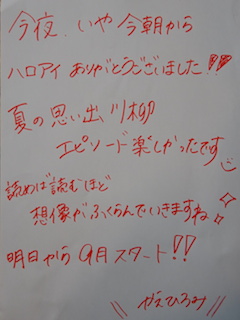 今夜、いや 今朝から
ハロアイ ありがとうございました!!
夏の思い出 川柳
エピソード楽しかったです
読めば読むほど
想像がふくらんでいきますね
明日から 9月 スタート!!
\\ かえひろみ //